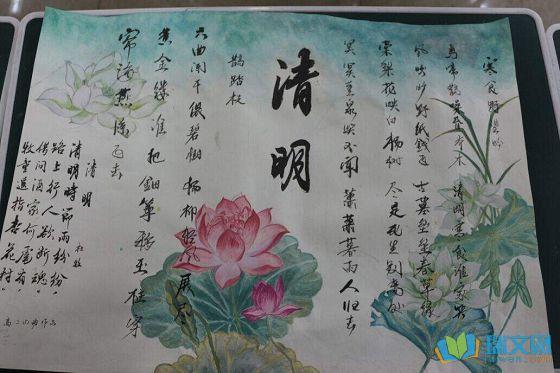 寒食野望吟
乌啼鹊噪昏乔木 清明寒食谁家哭
风吹旷野纸钱飞 古墓垒垒春草绿
棠梨花映白杨树 尽是死生别离处
冥冥重泉哭不闻 萧萧暮雨人归去
清明
鹊踏枝
六曲阑干偎碧树 杨柳风 展尽
黄金缕 谁把钿筝移玉柱 穿
帘海燕飞去
清明 杜牧
清明时节雨纷纷，
路上行人欲断魂。
借问酒家何处有，
牧童遥指杏花村。
高二 作品
瑞文网